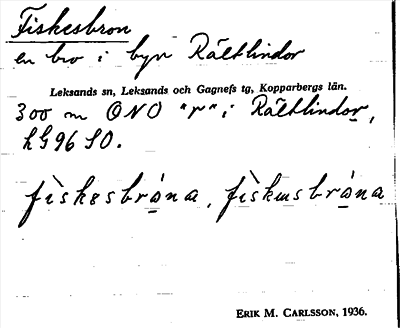 Fiskesbron
en bro i byn Rältlindor
Leksands sn, Leksands och Gagnefs tg, Kopparbergs län.
300 m ONO "r" i Rältlindor,
LG96 SO.
fìskesbrȧ́na, fìskusbrȧ́na
ERIK M. CARLSSON, 1936.